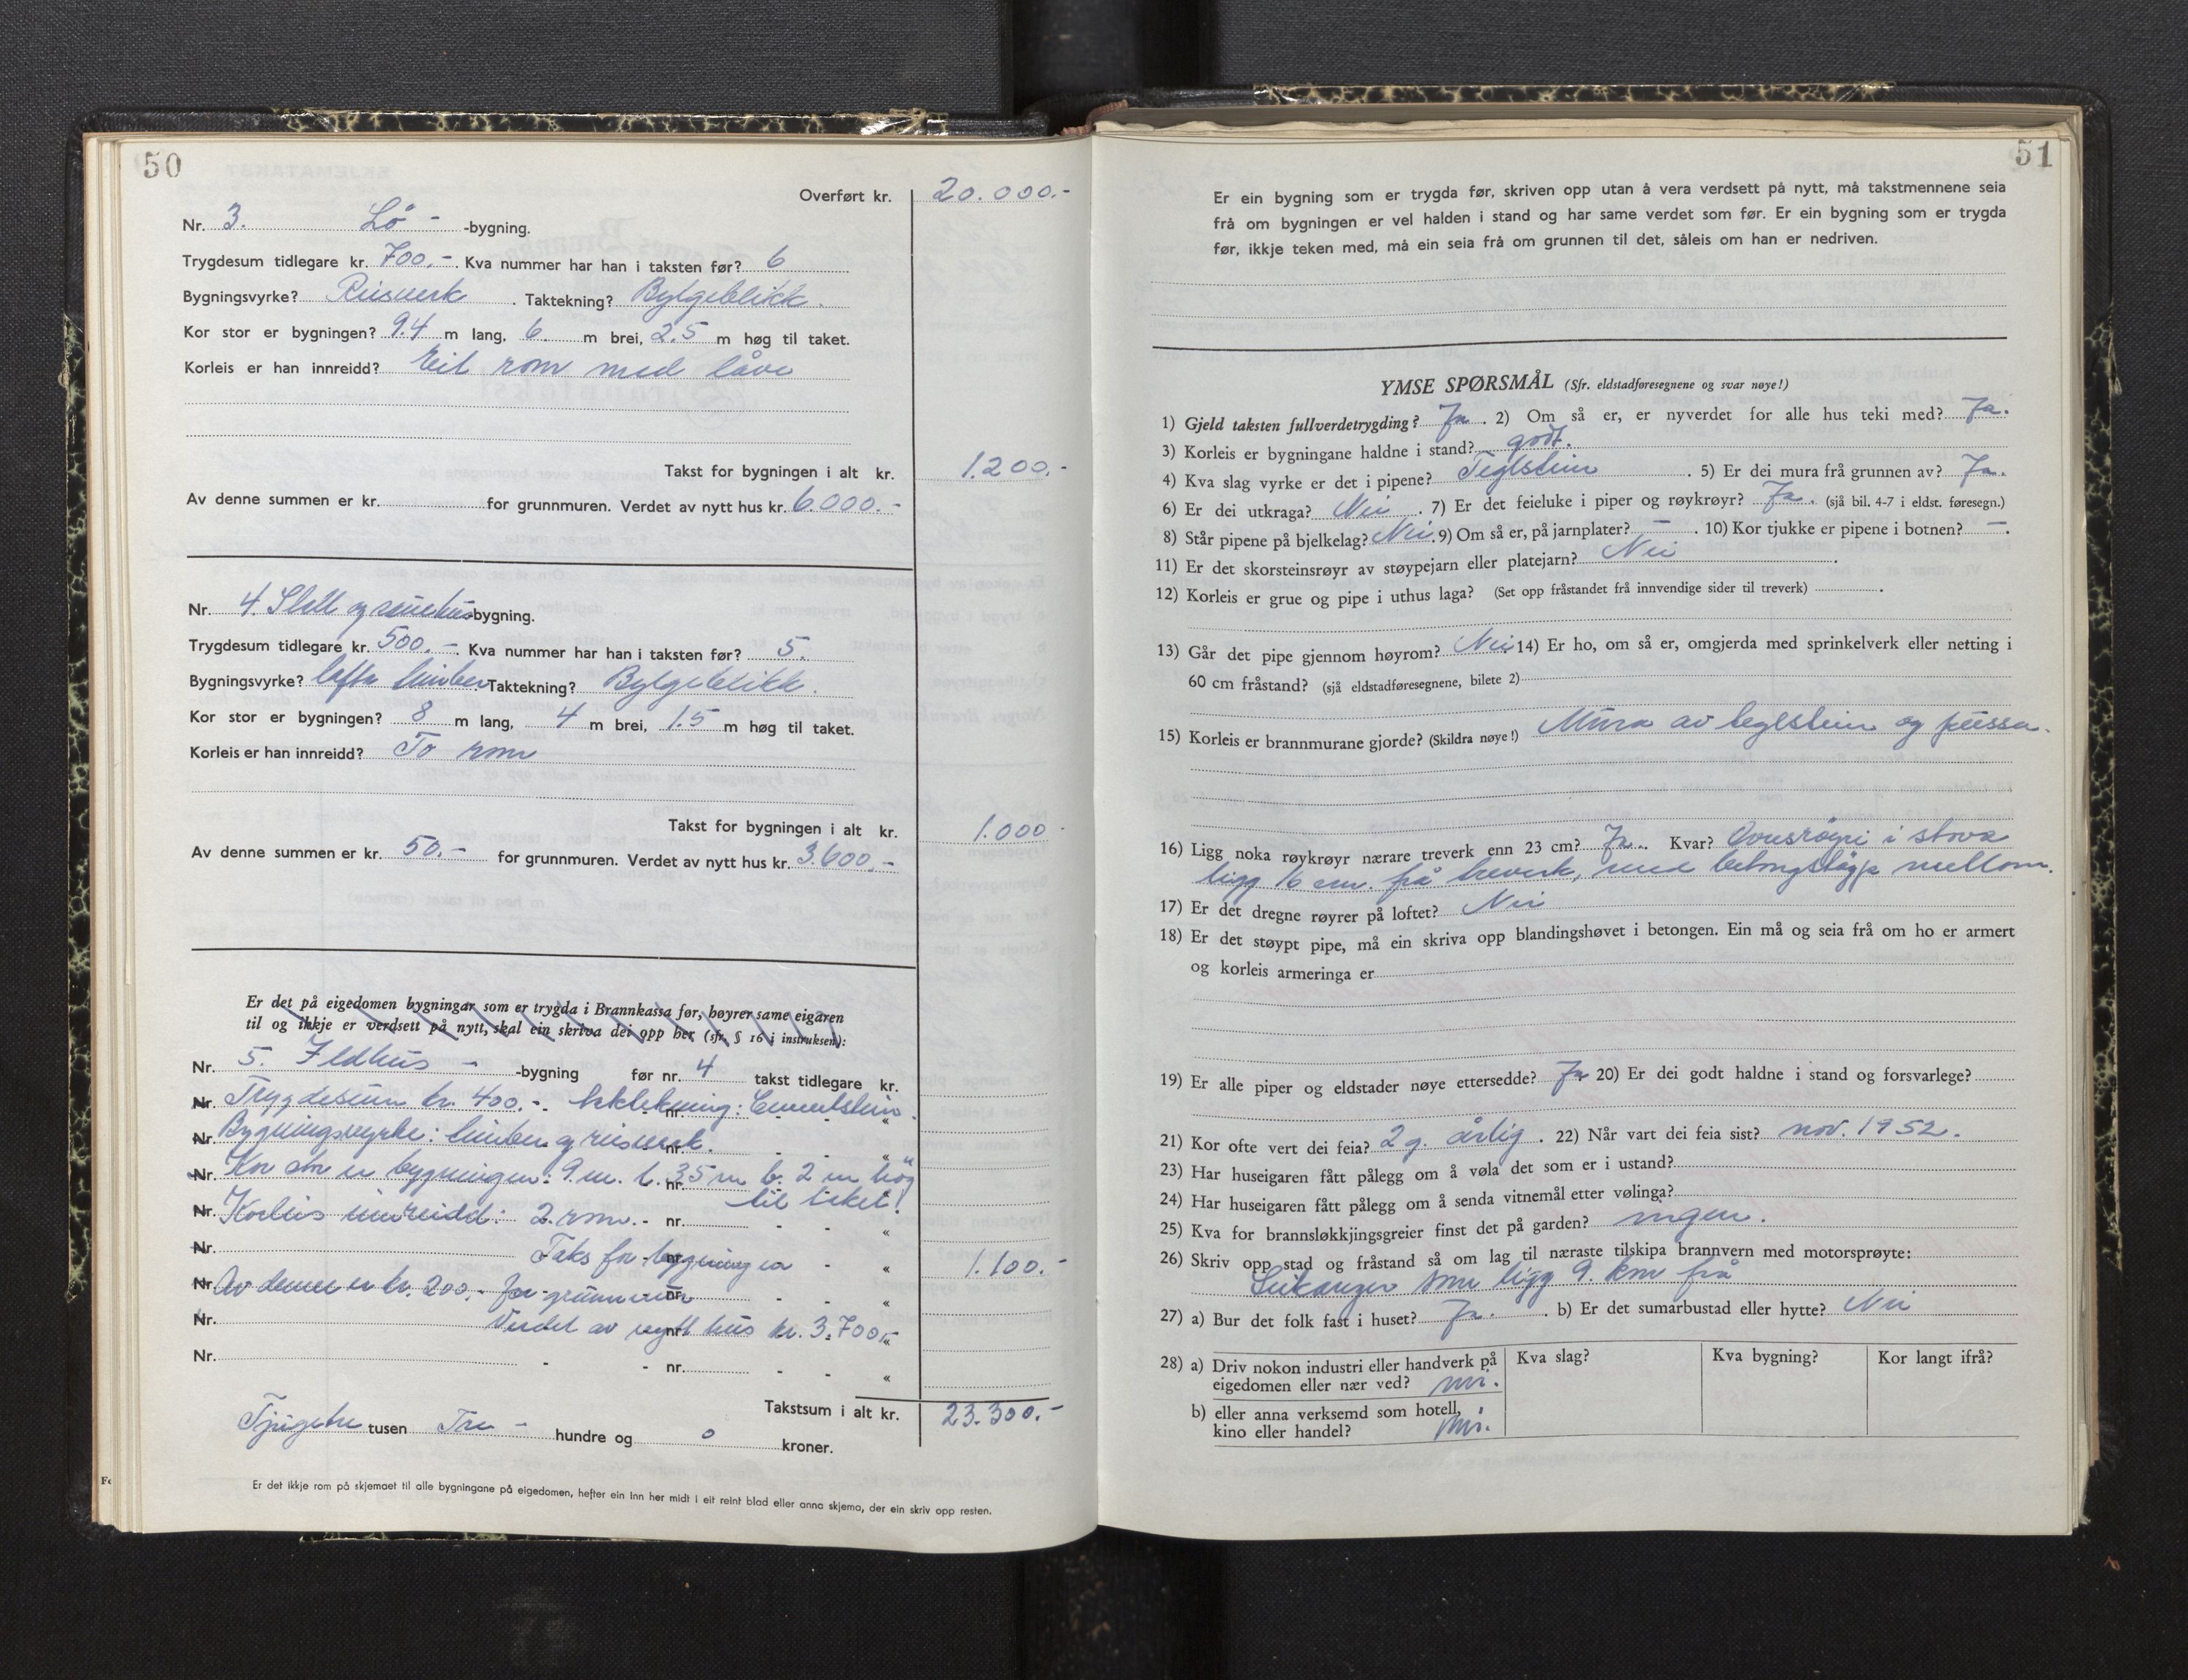 50
Overført kr. 20.000.-
Nr. 3. Lö - -bygning.
Trygdesum tidlegare kr. 700.- . Kva nummer har han i taksten før? 6
Bygningsvyrke? Reisverk . Taktekning? Bylgeblikk.
Kor stor er bygningen? 9.4 m lang, 6. m brei, 2.5 m høg til taket.
Korleis er han innreidd? Eit rom med låve
Takst for bygningen i alt kr. 1.200.-
Av denne summen er kr. for grunnmuren. Verdet av nytt hus kr. 6.000.-
Nr. 4. og -bygning.
Trygdesum tidlegare kr. 500.- . Kva nummer har han i taksten før? 5.
Bygningsvyrke? lafta timber Taktekning? Bylgeblikk.
Kor stor er bygningen? 8 m lang, 4 m brei, 1.5 m høg til taket.
Korleis er han innreidd? To rom
Takst for bygningen i alt kr. 1.000
Av denne summen er kr. 50.- for grunnmuren. Verdet av nytt hus kr. 3.600.-
Er det på eigedomen bygningar som er trygda i Brannkassa før, høyrer same eigaren
til og ikkje er verdsett på nytt, skal ein skriva dei opp her (sfr. § 16 i instruksen):
Nr. 5. Ildhus - -bygning før nr. 4 takst tidlegare kr.
Nr. Trygdesum kr. 400.-. taktekning: Cementstein. - nr. - - «
Nr. Bygningsvyrke: timber og reisverk. nr. - - «
Nr. Kor stor er bygningen: 9 m. l. 3.5 m b. 2 m høg nr.
til taket!
Nr. Korleis innreidd: 2 rom. - nr. - - «
Nr. Taks for bygningen nr. - « 1.100.-
Nr. Av denne er kr. 200.- for grunnmur nr. - - «
Nr. Verdet av nytt hus kr. 3.700.- nr. «
Nr. - - nr. - - «
Takstsum i alt kr. 23.300.-
Tjugetre tusen Tre - hundre og 0 kroner.
Er det ikkje rom på skjemaet til alle bygningane på eigedomen, hefter ein inn her midt i eit reint blad eller anna skjema, der ein skriv opp resten.
51
Er ein bygning som er trygda før, skriven opp utan å vera verdsett på nytt, må takstmennene seia
frå om bygningen er vel halden i stand og har same verdet som før. Er ein bygning som er trygda
før, ikkje teken med, må ein seia frå om grunnen til det, såleis om han er nedriven.
YMSE SPØRSMÅL (Sfr. eldstadføresegnene og svar nøye!)
1) Gjeld taksten fullverdetrygding? Ja . 2) Om så er, er nyverdet for alle hus teki med? Ja.
3) Korleis er bygningane haldne i stand? godt.
4) Kva slag vyrke er det i pipene? Teglstein . 5) Er dei mura frå grunnen av? Ja.
6) Er dei utkraga? Nei . 7) Er det feieluke i piper og røykrøyr? Ja . (sjå bil. 4-7 i eldst. føresegn.)
8) Står pipene på bjelkelag? Nei . 9) Om så er, på jarnplater? - . 10) Kor tjukke er pipene i botnen? - .
11) Er det skorsteinsrøyr av støypejarn eller platejarn? Nei .
12) Korleis er grue og pipe i uthus laga? (Set opp fråstandet frå innvendige sider til treverk) .
13) Går det pipe gjennom høyrom? Nei 14) Er ho, om så er, omgjerda med sprinkelverk eller netting i
60 cm fråstand? (sjå eldstadføresegnene, bilete 2)
15) Korleis er brannmurane gjorde? (Skildra nøye!) Mura av teglstein og pussa.
16) Ligg noka røykrøyr nærare treverk enn 23 cm? Ja . Kvar? Ovnsrøyri i stova
ligg 16 cm. frå treverk, med mellom.
17) Er det dregne røyrer på loftet? Nei
18) Er det støypt pipe, må ein skriva opp blandingshøvet i betongen. Ein må og seia frå om ho er armert
og korleis armeringa er
19) Er alle piper og eldstader nøye ettersedde? Ja 20) Er dei godt haldne i stand og forsvarlege?
21) Kor ofte vert dei feia? 2 g. årlig . 22) Når vart dei feia sist? nov. 1952.
23) Har huseigaren fått pålegg om å vøla det som er i ustand?
24) Har huseigaren fått pålegg om å senda vitnemål etter vølinga?
25) Kva for brannsløkkjingsgreier finst det på garden? ingen.
26) Skriv opp stad og fråstand så om lag til næraste tilskipa brannvern med motorsprøyte:
Leikanger som ligg 9. km frå
27) a) Bur det folk fast i huset? Ja. . b) Er det sumarbustad eller hytte? Nei
28) a) Driv nokon industri eller handverk på
eigedomen eller nær ved? nei.
Kva slag? Kva bygning? Kor langt ifrå?
b) eller anna verksemd som hotell,
kino eller handel? Nei.